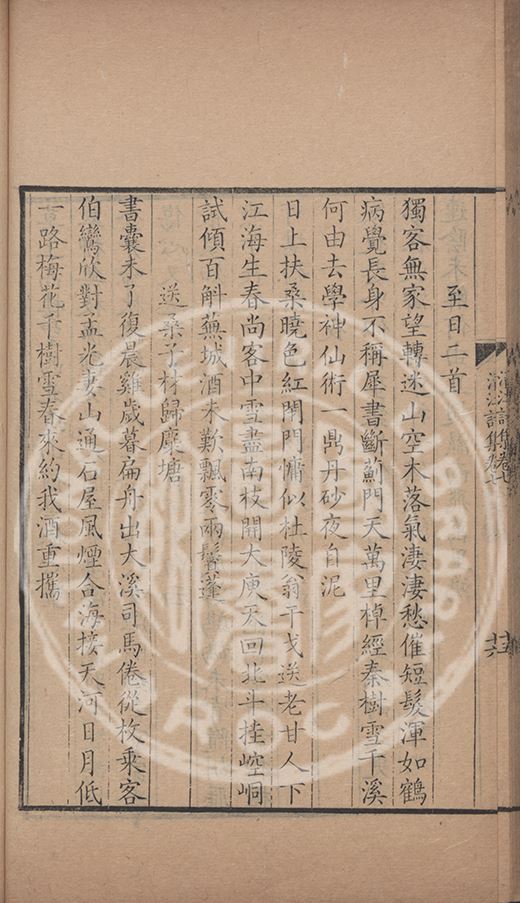 至日二首
獨客無家望轉迷山空木落氣淒淒愁催短髮渾如鶴
病覺長身不稱犀書斷薊門天萬里棹經秦樹雪千溪
何由去學神仙術一鼎丹砂夜自泥
日上扶桑曉色紅閉門慵似杜陵翁干戈送老甘人下
江海生春尚客中雪盡南枝開大庾天回北斗挂崆峒
試傾百斛蕪城酒未歎飄零兩鬢蓬
送桑子材歸麋塘
書囊未了復晨雞歲暮扁舟出大溪司馬倦從枚乘客
伯鸞欣對孟光妻山通石屋風煙合海接天河日月低
言路梅花千樹雪春來約我酒重攜
清江詩集卷七
十六